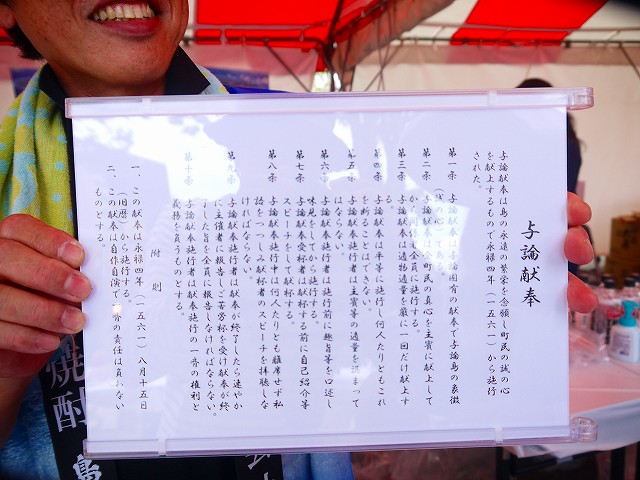 与論献奉
与論献奉は島の永遠の繁栄を念願し町民の誠の心
を献上するもので永禄四年（一五六一）から施行
された。
第一条 与論献奉は与論固有の献奉で与論島の象徴
（誠の心）である。
第二条 与論献奉は全町民の真心を主賓に献上して
から同席の全員に施行する。
第三条 与論献奉は適物適量を厳に一回だけ献上す
る。
第四条 与論献奉は平等に施行し何人たりともこれ
を断ることはできない。
第五条 与論献奉施行者は主賓等の適量を誤まって
はならない。
第六条 与論献奉施行者は施行前に趣旨等を口述し
味見をしてから施行する。
第七条 与論献奉受杯者は献杯する前に自己紹介等
スピーチをして献杯する。
第八条 与論献奉施行中は何人たりとも離席せず私
語をつつしみ献杯者のスピーチを拝聴しな
ければならない。
第九条 与論献奉施行者は献奉が終了したら速やか
に主催者に報告しご苦労杯を受け献奉が終
了した旨を全員に報告しなければならない。
第十条 与論献奉施行者は献奉施行の一斉の権利と
義務を負うものとする。
附則
一、この献奉は永禄四年（一五六一）八月十五日
（旧暦）から施行する。
二、この献奉は自作自演で の責任は負わない
ものとする。
焼酎 島